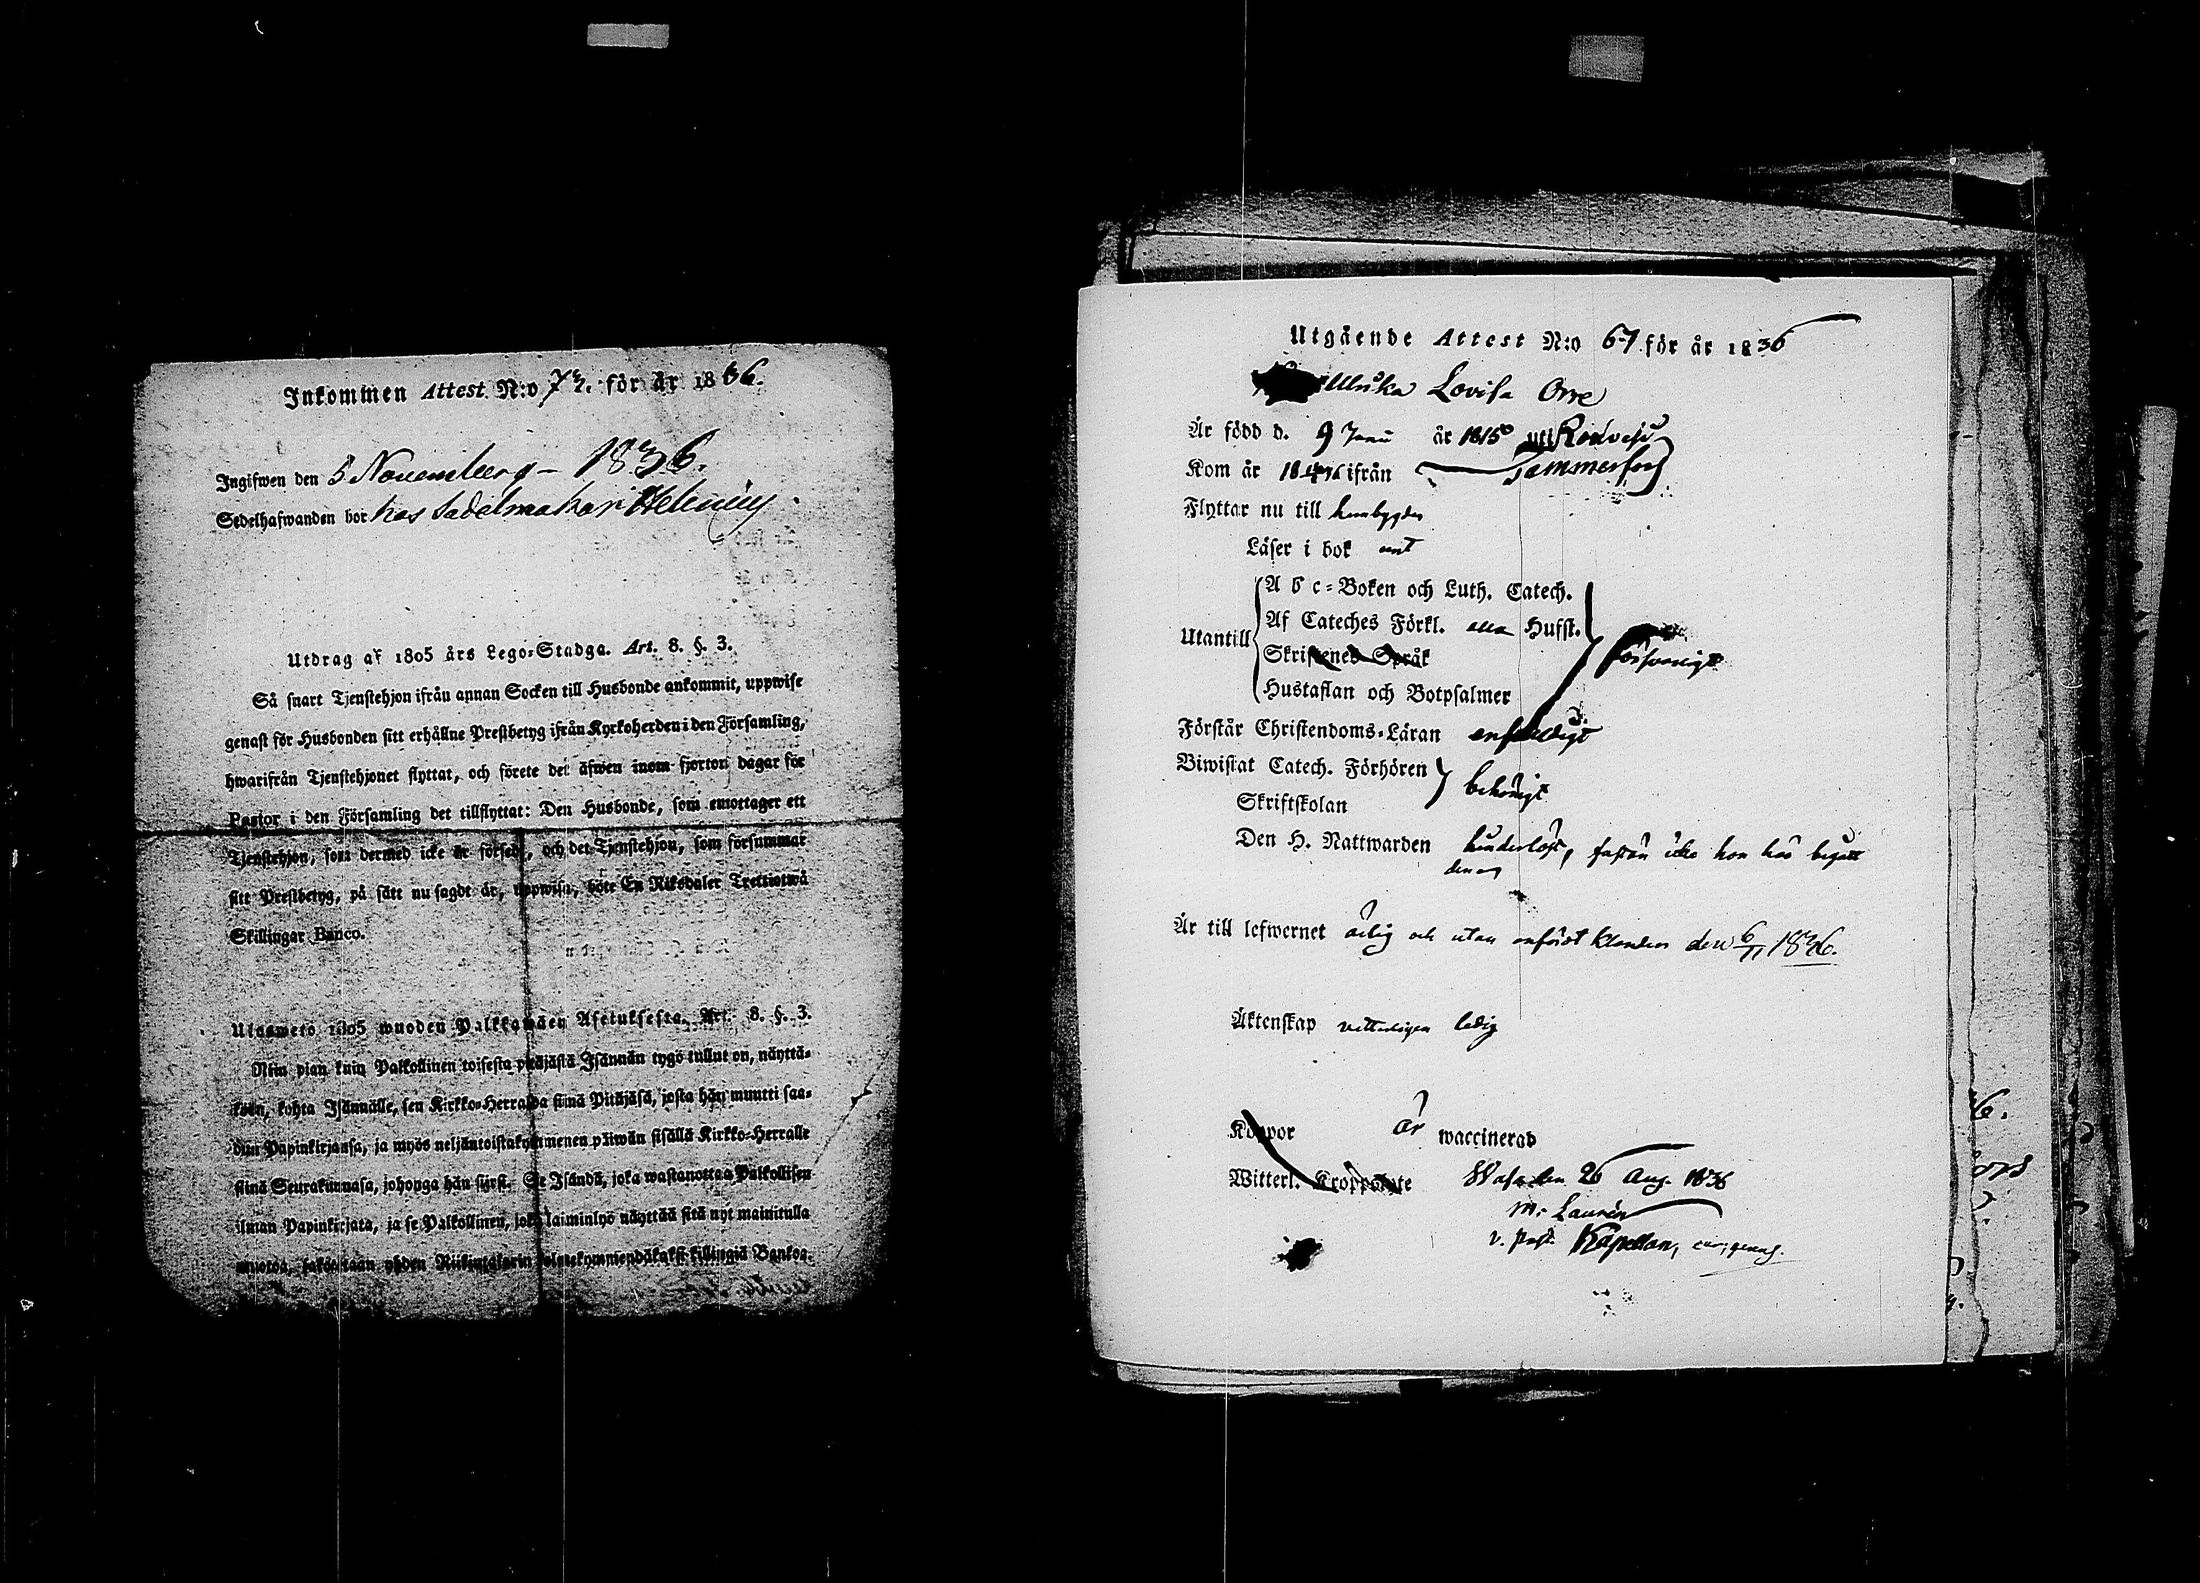 Inkommen Attest N:o 72. för år 1836.
Ingifwen den 5 November 1836.
Sedelhafwanden bor hos Sadelmakar
Utdrag af 1805 års Lego-Stadga. Art. 8. §. 3.
Så snart Tjenstehjon ifrån annan Socken till Husbonde ankommit, uppwise
genast för Husbonden sitt erhållne Prestbetyg ifrån Kyrkoherden i den Församling,
hwarifrån Tjenstehjonet flyttat, och förete det äfwen inom fjorton dagar för
Pastor i den Församling det tillflyttat: Den Husbonde, som emottager ett
Tjenstehjon, som dermed icke är försedt, och det Tjenstehjon, som försummar
sitt Prestbetyg, på sätt nu sagdt är, uppwisa, böte En Riksdaler Trettiotwå
Skillingar Banco.
Ulosweto 1805 wuoden Palkkawäen Asetuksesta. Art. 8. §. 3.
Niin pian kuin Palkollinen toisesta pitäjästä Isännän tygö tullut on, näyttä-
köön, kohta Isännälle, sen Kirkko-Herralda siinä Pitäjäsä, josta hän muutti saa-
dun Papinkirjansa, ja myös neljäntoistakymmenen päiwän sisällä Kirkko-Herralle
siinä Seurakunnasa, johonga hän siirsi. Se Isändä, joka wastanottaa Palkollisen
ilman Papinkirjata, ja se Palkollinen, joka laiminlyö näyttää sitä nyt mainitulla
muotoa, wetäkään yhden Riikintalarin kolmekymmendäkaksi killingiä Bankoa.
Utgående Attest N:o 67 för år 1836
Ulrika Lovisa Orre
Är född d. 9 Janu år 1815 uti
Kom år ifrån Tammerfors
Flyttar nu till hembygden
Läser i bok
A b c-Boken och Luth. Catech.
Af Cateches Förkl. Hufst.
Utantill försvarligt
Skriftenes Språk
Hustaflan och Botpsalmer
Förstår Christendoms-Läran enfaldigt
Biwistat Catech. Förhören
behörigt
Skriftskolan
Den H. Nattwarden hinderlöst, fastän icke hon har begått
den
Är till lefwernet ärlig och utan anfördt klander den 6/11 1836.
Äktenskap vetterligen ledig
Koppor är waccinerad
Witterl. Kroppslyte Wasa den 26 Aug. 1836
M. Laurén
v. Past. Kapellan,